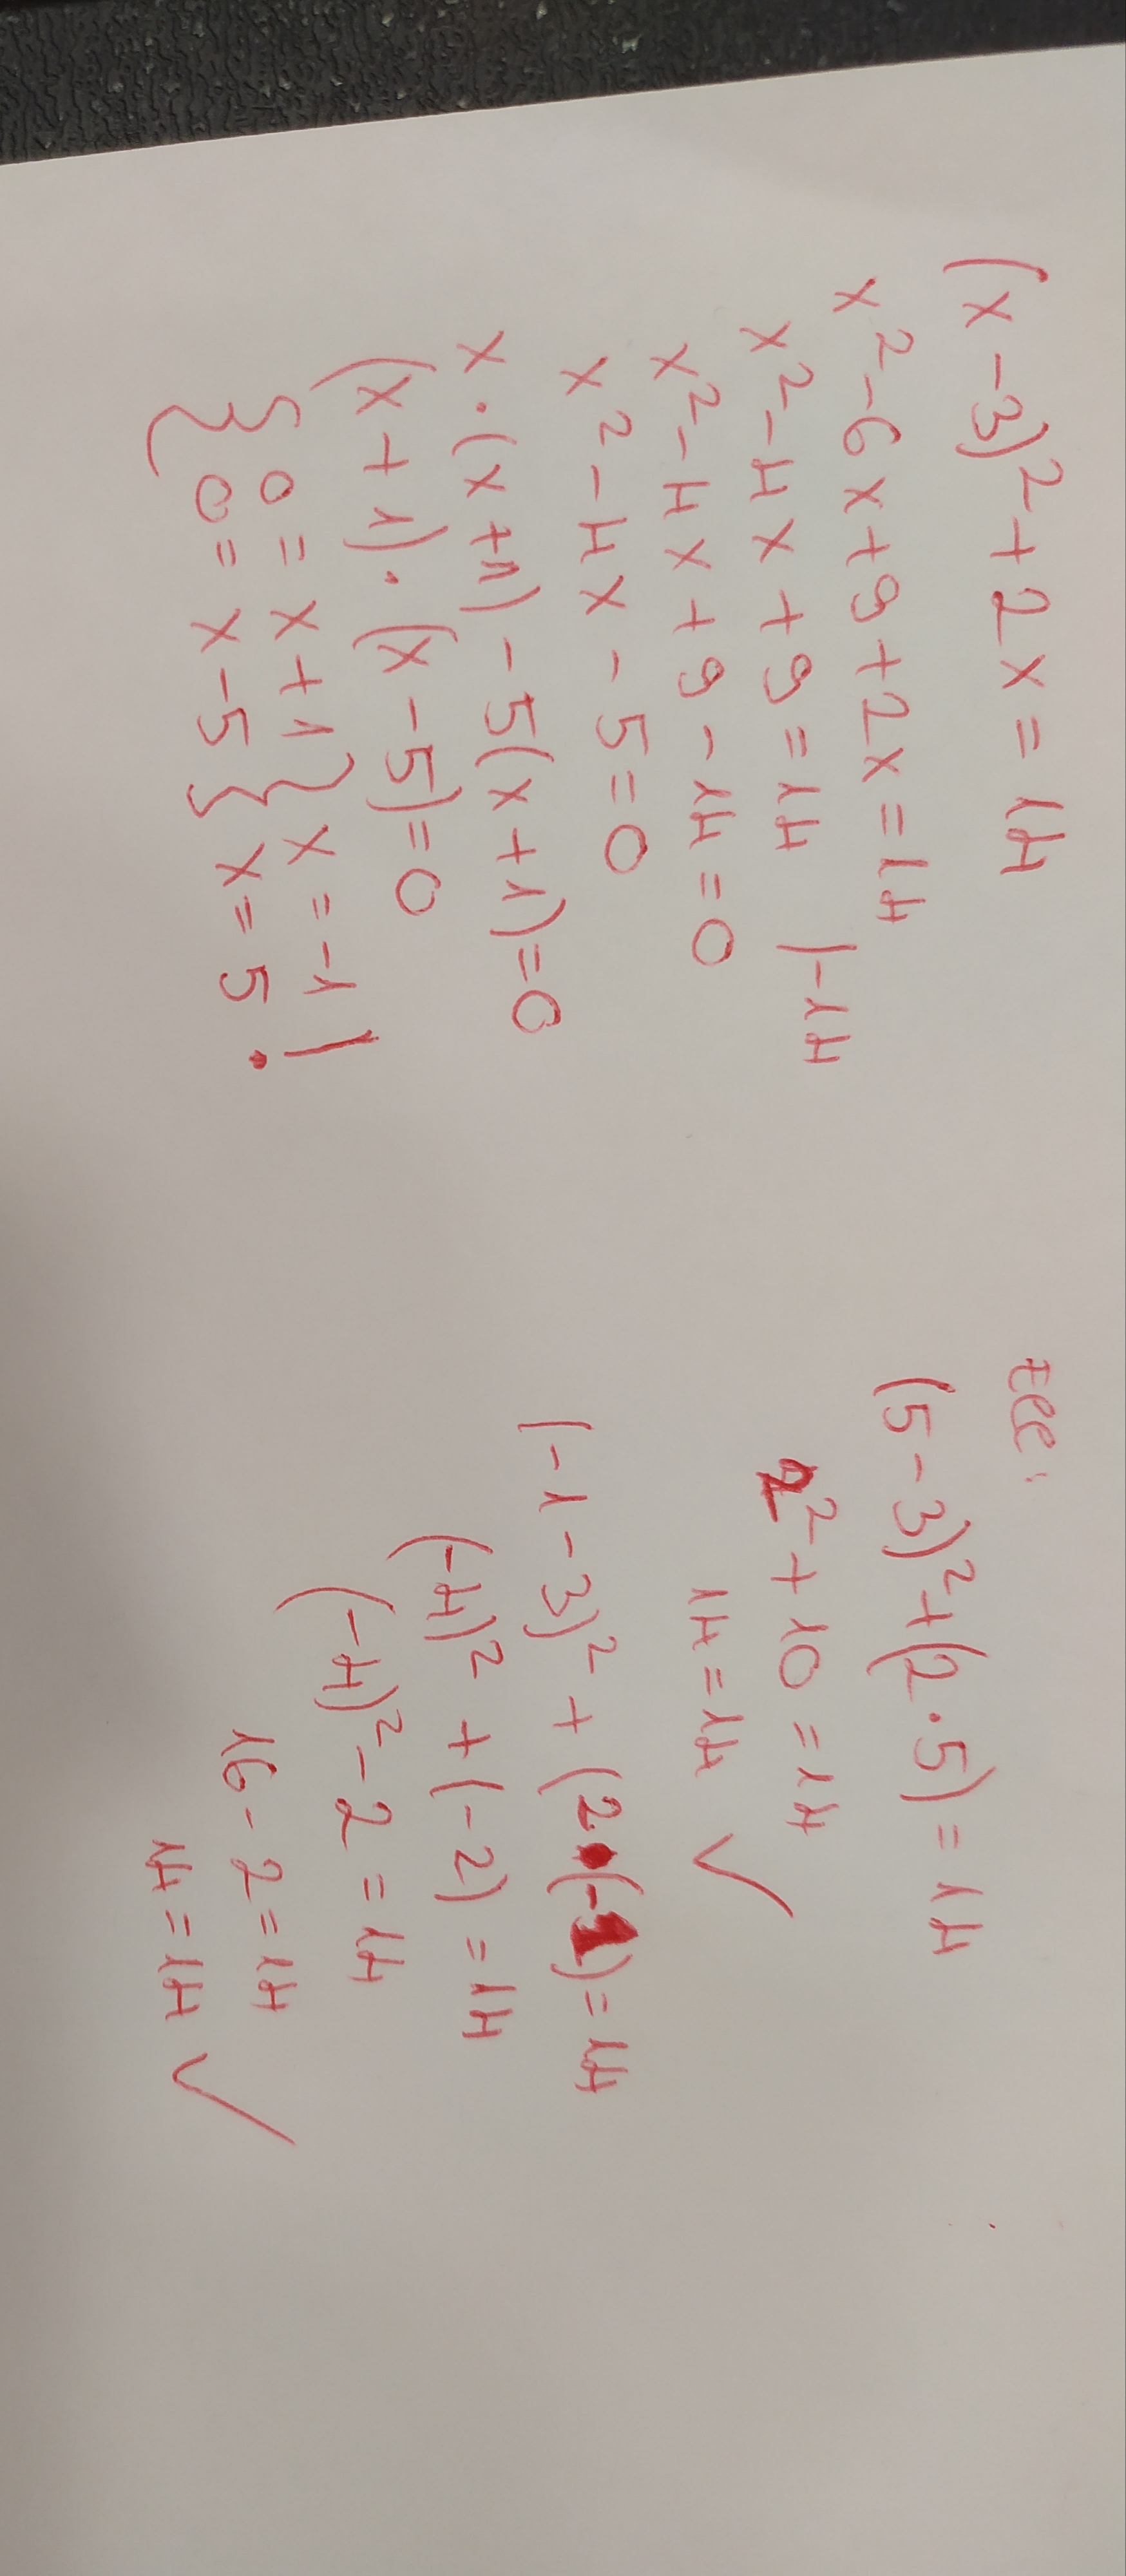 (x-3)²+2x=14
x²-6x+9+2x=14
x²-4x+9=14 |-14
x²-4x+9-14=0
x²-4x-5=0
x·(x+1)-5(x+1)=0
(x+1)·(x-5)=0
{0=x+1} x=-1
{0=x-5{ x=5.
(5-3)²+(2·5)=14
2²+10=14
14=14 ✓
(-1-3)²+(2·(-1)=14
(-4)²+(-2)=14
(-4)²-2=14
16-2=14
14=14 ✓